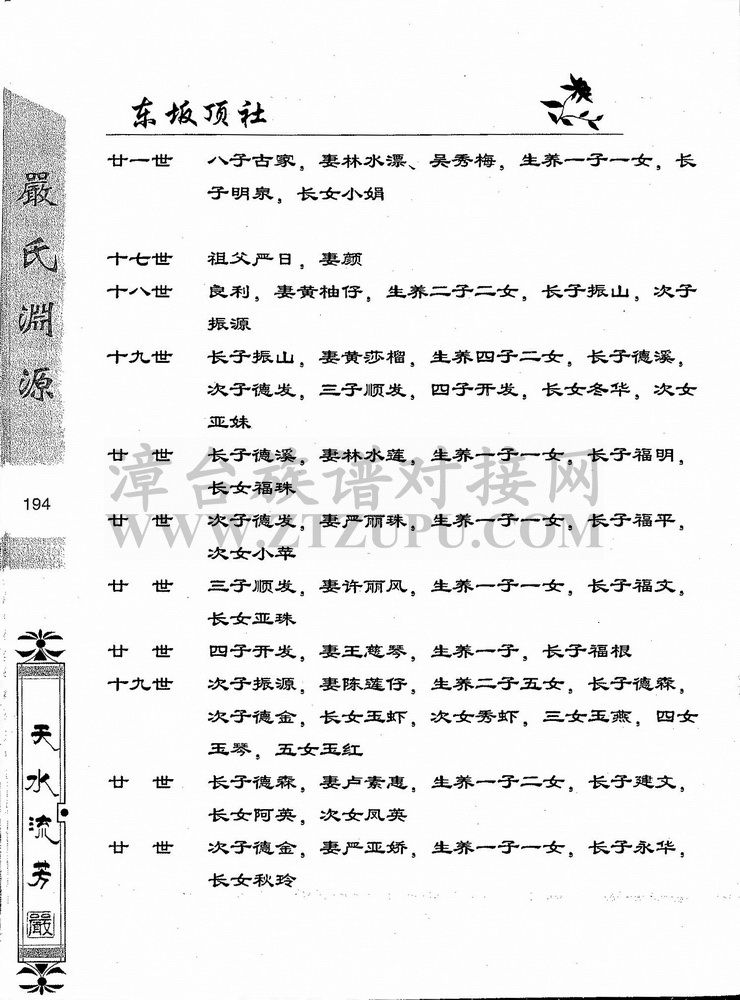 东坂顶社
廿一世 八子古家，妻林水漂、吴秀梅，生养一子一女，长
子明泉，长女小娟
十七世 祖父严日，妻颜
十八世 良利，妻黄柚仔，生养二子二女，长子振山，次子
振源
十九世 长子振山，妻黄莎榴，生养四子二女，长子德溪，
次子德发，三子顺发，四子开发，长女冬华，次女
亚妹
廿 世 长子德溪，妻林水莲，生养一子一女，长子福明，
长女福珠
廿 世 次子德发，妻严丽珠，生养一子一女，长子福平，
次女小苹
廿 世 三子顺发，妻许丽凤，生养一子一女，长子福文，
长女亚珠
廿 世 四子开发，妻王慈琴，生养一子，长子福根
十九世 次子振源，妻陈莲仔，生养二子五女，长子德森，
次子德金，长女玉虾，次女秀虾，三女玉燕，四女
玉琴，五女玉红
廿 世 长子德森，妻卢素惠，生养一子二女，长子建文，
长女阿英，次女凤英
廿 世 次子德金，妻严亚娇，生养一子一女，长子永华，
长女秋玲
嚴氏淵源
194
天水流芳
嚴
漳台族谱对接网
WWW.ZTZUPU.COM